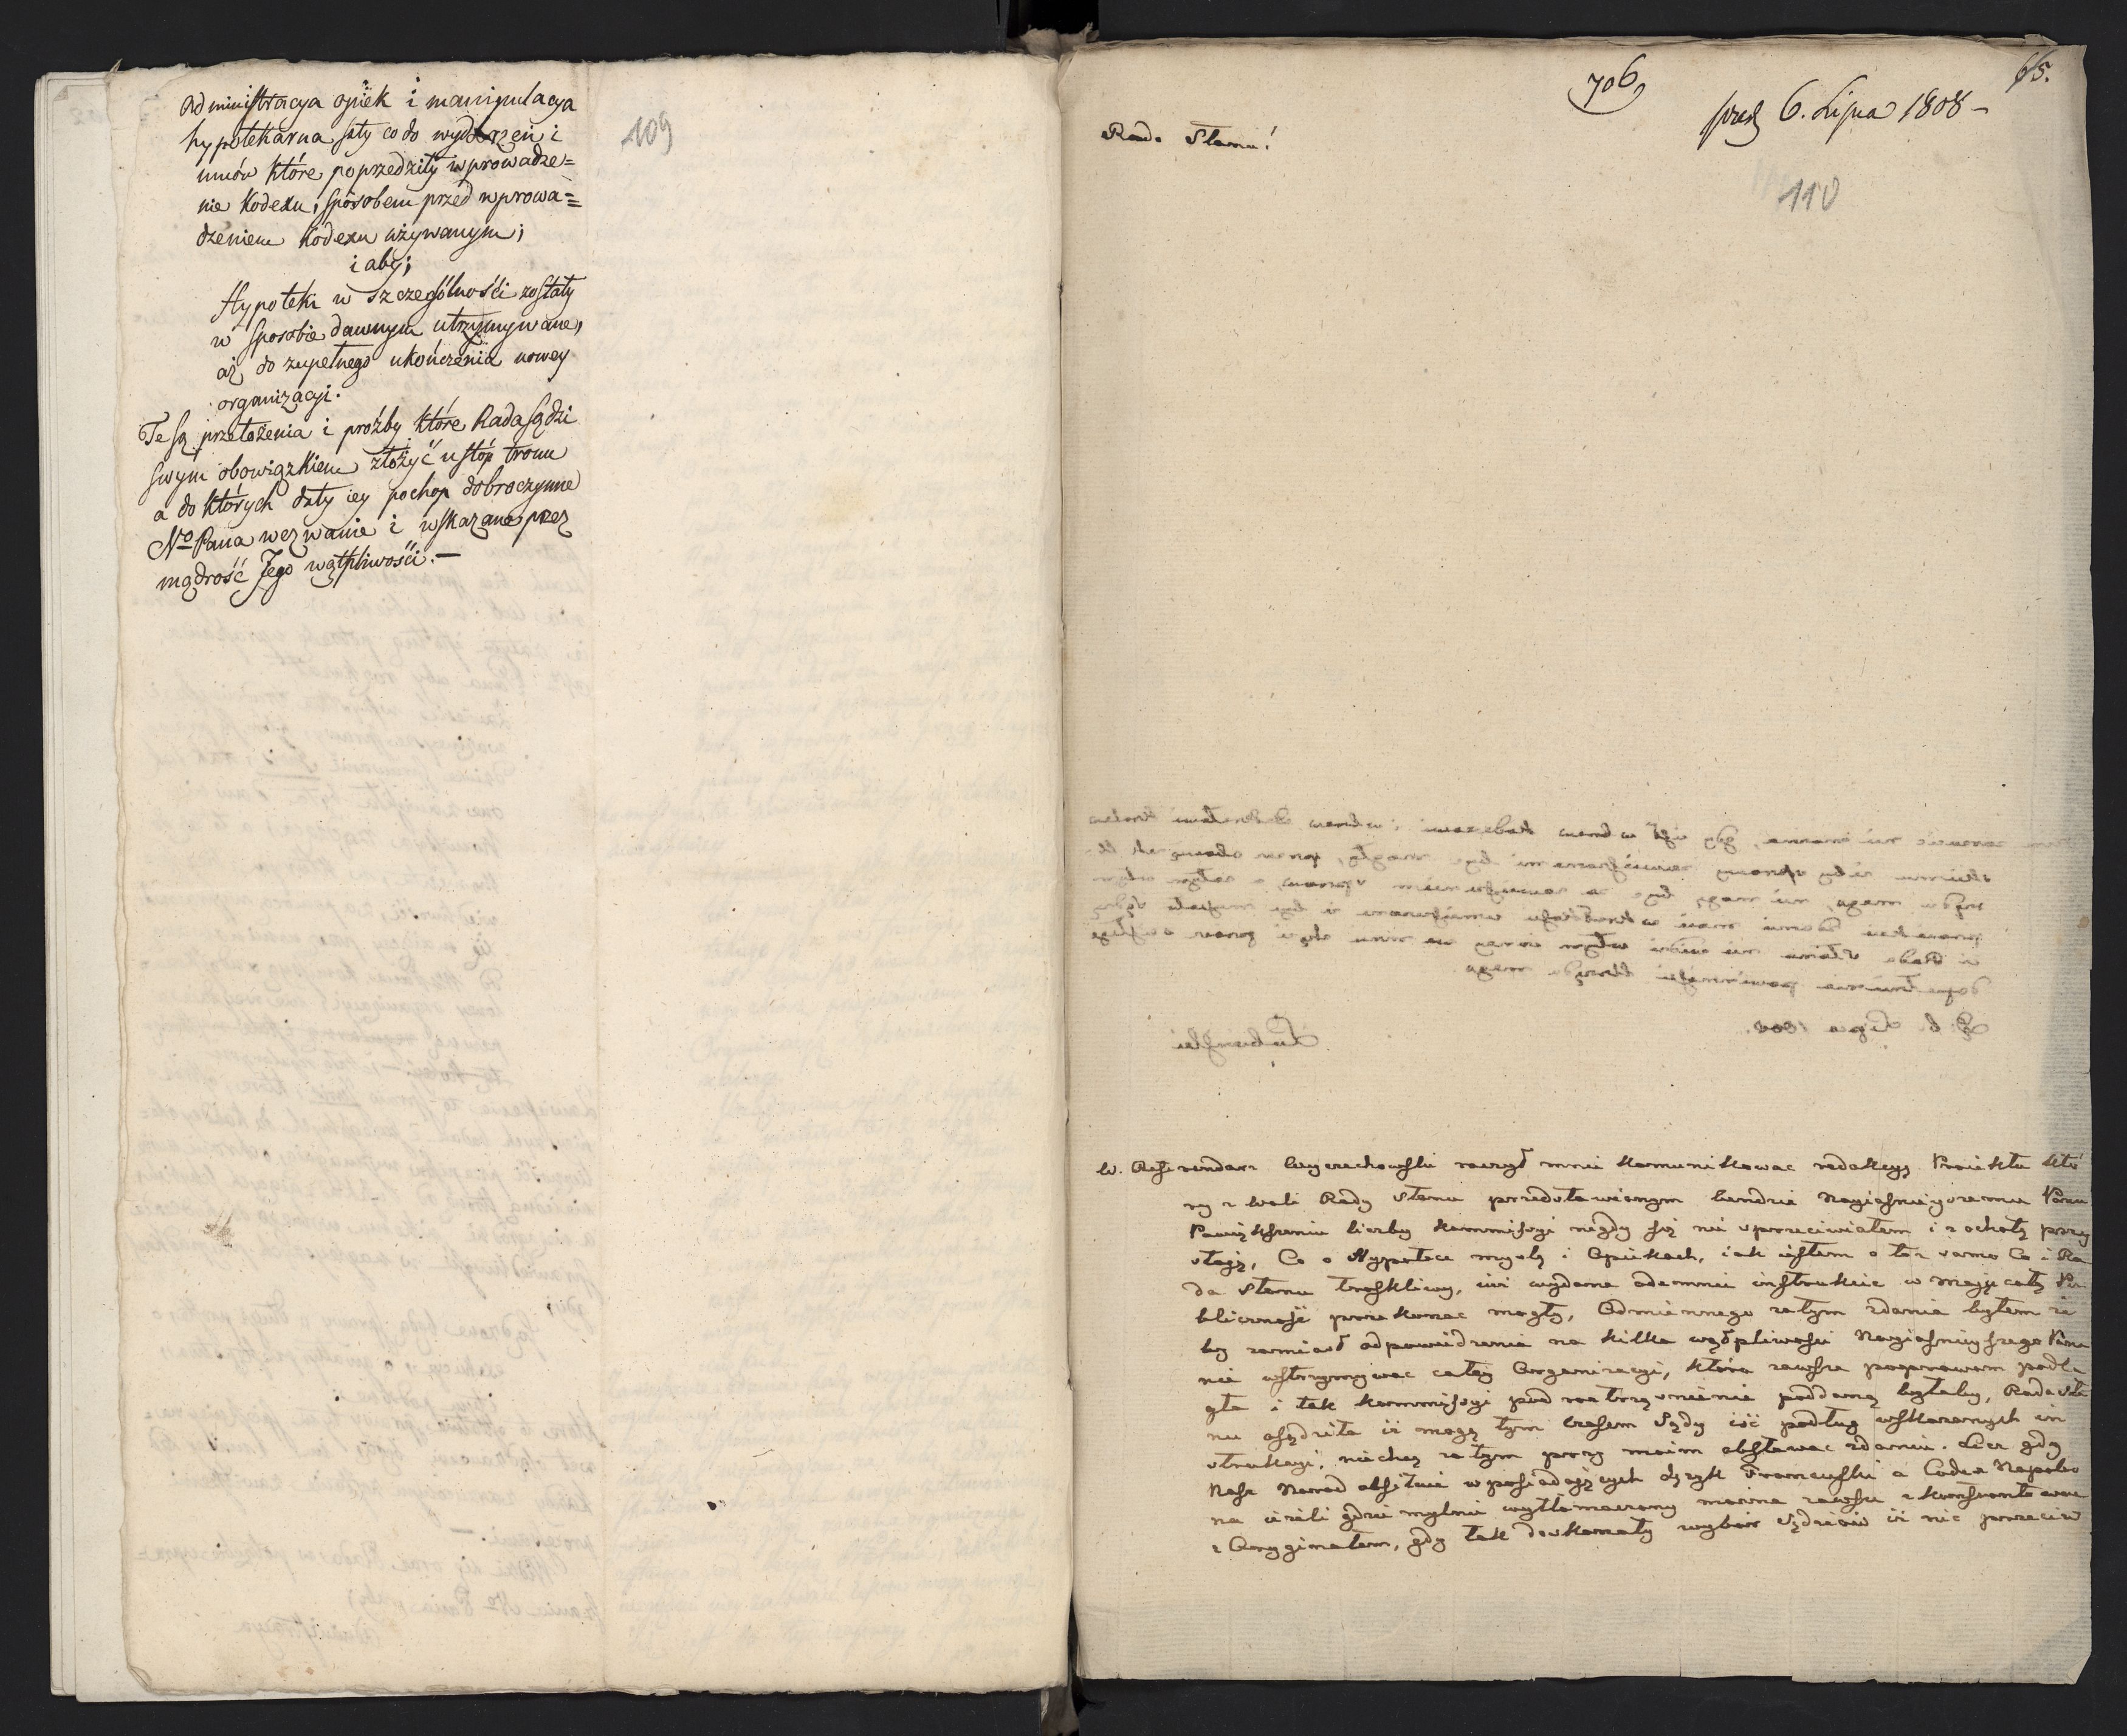 Administracya opiek i manipulacya
hypotekarna szły co do wydarzeń i
umów które poprzedziły wprowadze=
nie Kodexu, sposobem przed wprowa=
dzeniem Kodexu używanym;
i aby;
Hypoteki w szczególności zostały
w sposobie dawnym utrzymywane,
aż do zupełnego ukończenia nowey
organizacyi.
Te są przełożenia i proźby które Rada sądzi
swym obowiązkiem złożyć u stóp tronu
a do których dały iey pochop dobroczynne
No Pana wezwanie i wskazane przez
mądrość Jego wątpliwości.—
109
706
65.
6. Lipca 1808 –
Rado Stanu!
110
W. Referendarz raczył mnie kommunikować redakcyą Proiektu któ
ry z woli Rady Stanu przedstawionym bendzie Nayiasnieyszemu Panu
Powiększeniu liczby kommissyi nigdy się nie sprzeciwiałem i z ochotą przy
staię, Co o Hypotece myślę i Opiekach, iak iestem o toż samo Co i Ra
da Stanu troskliwy, iuż wydana odemnie instrukcie w Moię całą Pu
bliczność przekonać mogły, Odmiennego zatym zdania byłem że
by zamiast odpowiedzenia na kilka wątpliwości Nayiasnieyszego Pana
nie wstrzymywać całey Organizacyi, która zawsze poprawom podle
gła i tak kommissyi pod roztrząśnienie poddaną byłaby, Rada Sta
nu osądziła iż mogą tym czasem Sądy iść podług wskazanych in
strukcyi, niechcę zatym przy moim obstawać zdaniu. Lecz gdy
Nasz Naród obfituie w posiadaiących ięzyk Francuski a Codex Napoleo
na ieżeli gdzie mylnie wytłomaczony można zawsze skonfrontować
z Oryginałem, gdy tak doskonały wybór Sędziów iż nic przeciw